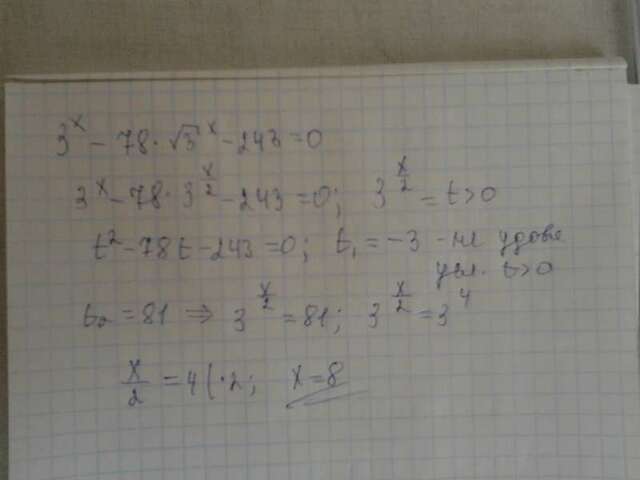 3^x - 78 · √3^x - 243 = 0
3^x - 78 · 3^(x/2) - 243 = 0; 3^(x/2) = t > 0
t² - 78t - 243 = 0; t₁ = -3 - не удовл
усл. t > 0
t₂ = 81 ⇒ 3^(x/2) = 81; 3^(x/2) = 3^4
x/2 = 4 | · 2; x = 8